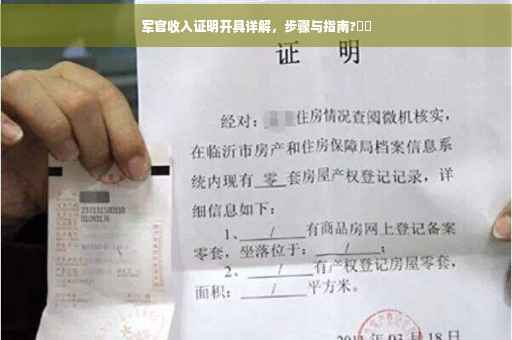 军官收入证明开具详解，步骤与指南?
证 明
经对：住房情况查阅微机核实，
在临沂市房产和住房保障局档案信息系
统内现有 零 套房屋产权登记记录，详
细信息如下：
1、 / 有商品房网上登记备案
零套，坐落位于： / ；
2、 / 有产权登记房屋零套，
面积： / 平方米。
03月18日